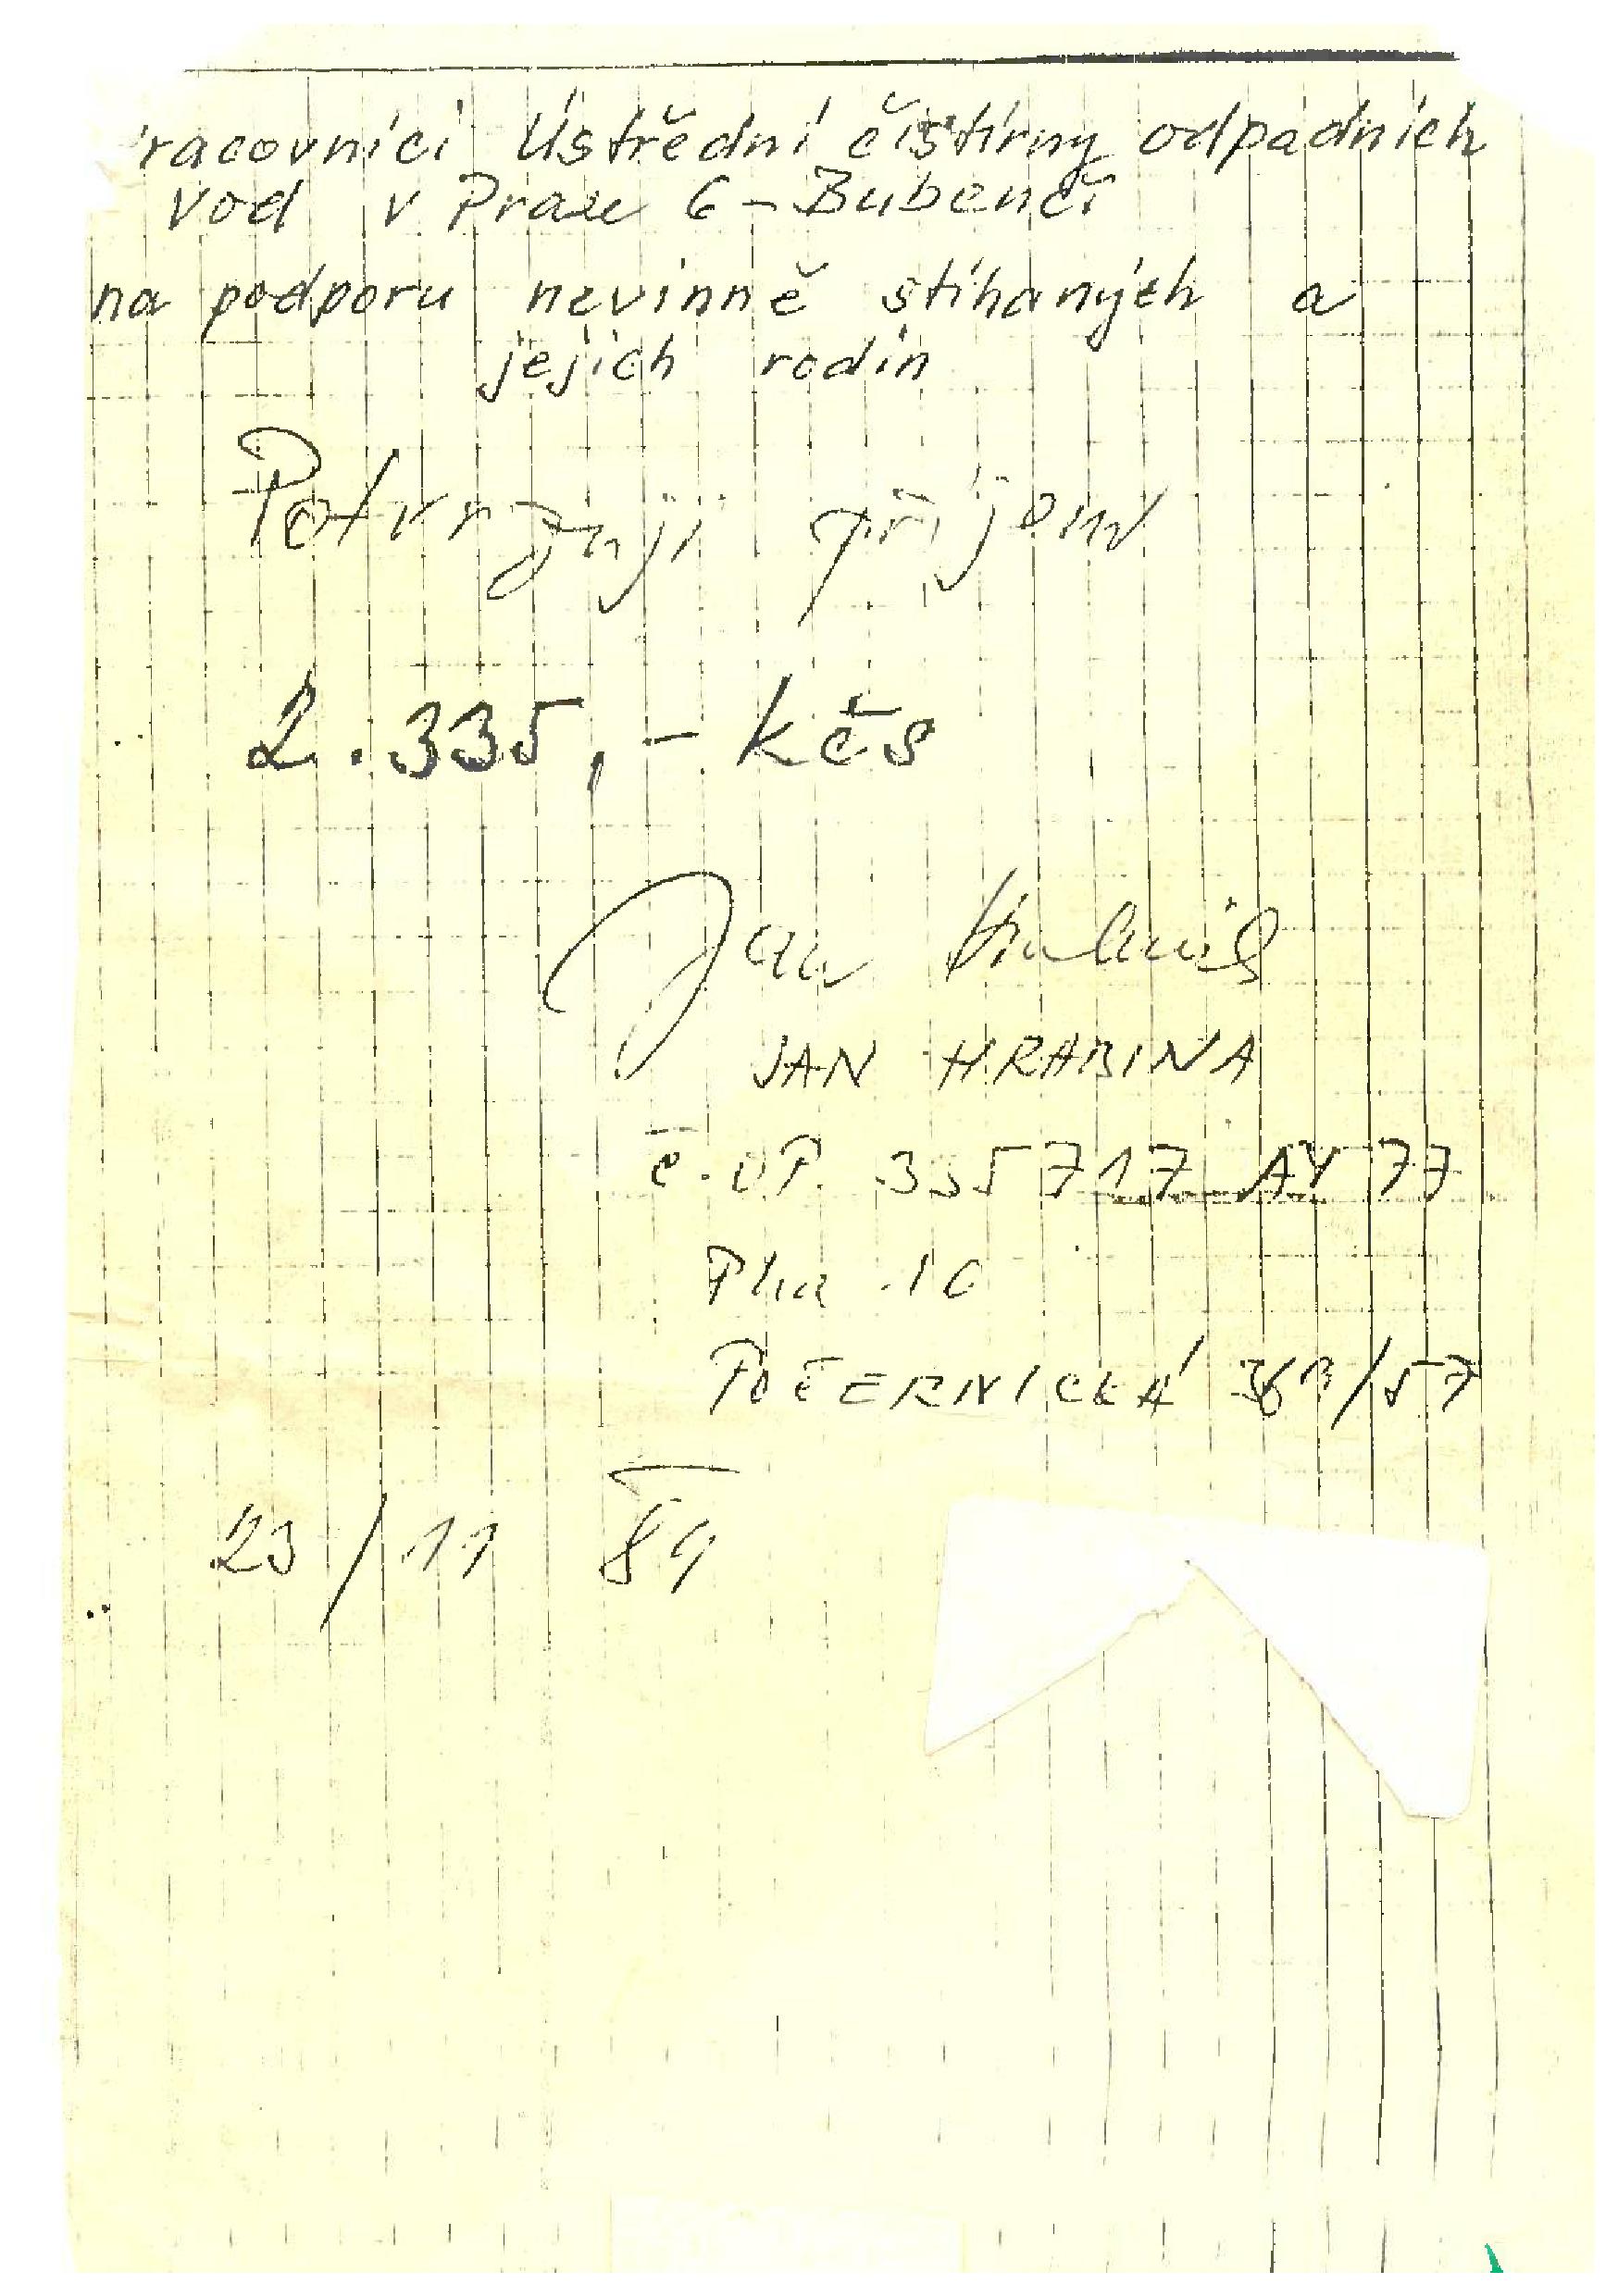 racovníci Ústřední čistírny odpadních
vod v Praze 6 - Bubenči
na podporu nevinně stíhaných a
jejich rodin
Potvrzuji příjem
2.335,- kčs
Jan
JAN HRABINA
č. OP. 335717 AY 77
Pha 10
POČERNICKÁ 363/57
23/11 89